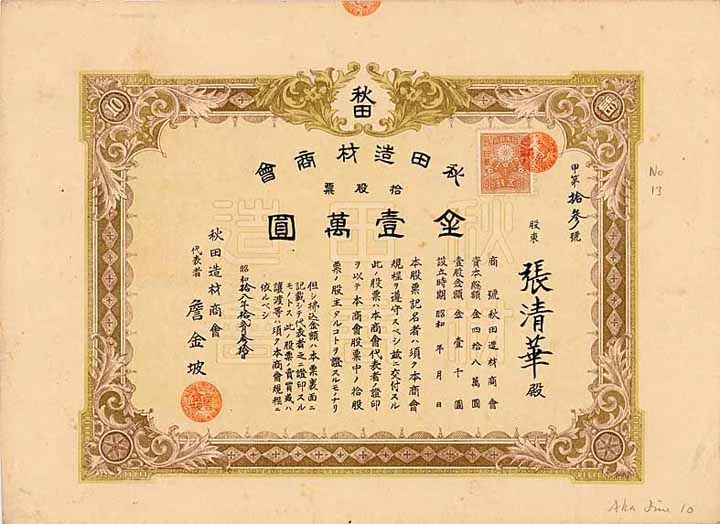 秋田
10
秋田造材商會
拾股票
金壹萬圓
甲第拾參號
No 13
股東
張清華殿
商號秋田造材商會
資本總額金四拾八萬圓
壹股金額金壹千圓
設立時期昭和年月日
本股票記名者ハ須ク本商會
規程ヲ遵守スベシ茲ニ交付スル
此ノ股票ハ本商會代表者ノ證印
ヲ以テ本商會股票中ノ拾股
票ノ股主タルコトヲ證スルモノナリ
但シ拂込金額ハ本票裏面ニ
記載シテ代表者之ニ證印スル
モノトス此ノ股票ノ賣買或ハ
讓渡等ハ須ク本商會規程ニ
依ルベシ
昭和拾八年拾貳月參拾日
秋田造材商會
代表者
詹金坡
10